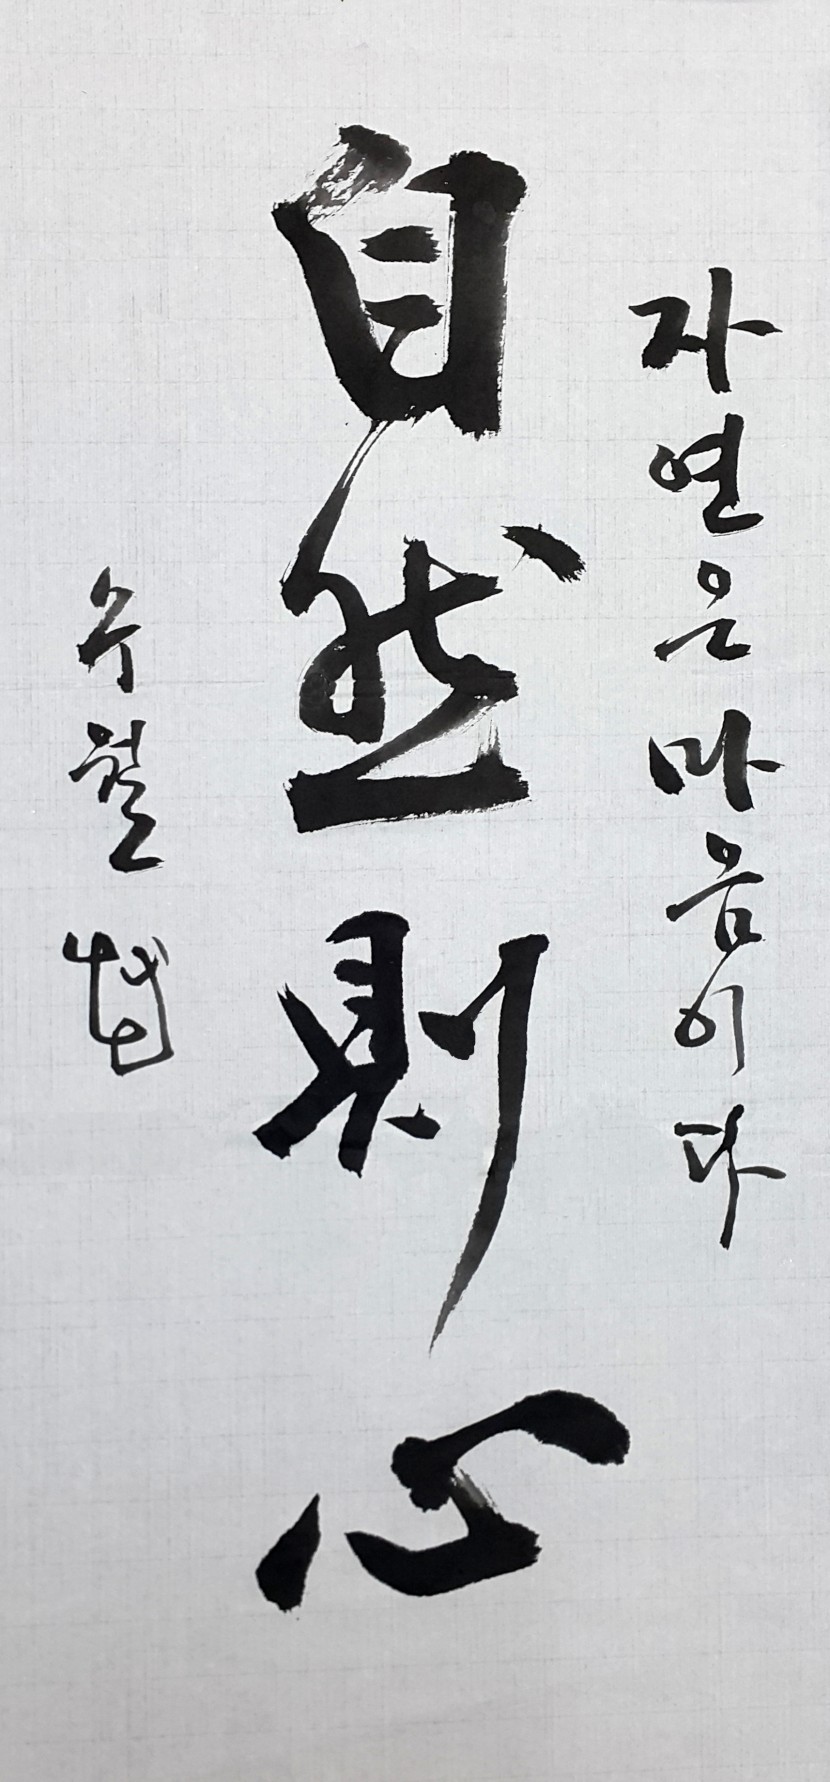 자연은마음이다
自然則心
수월